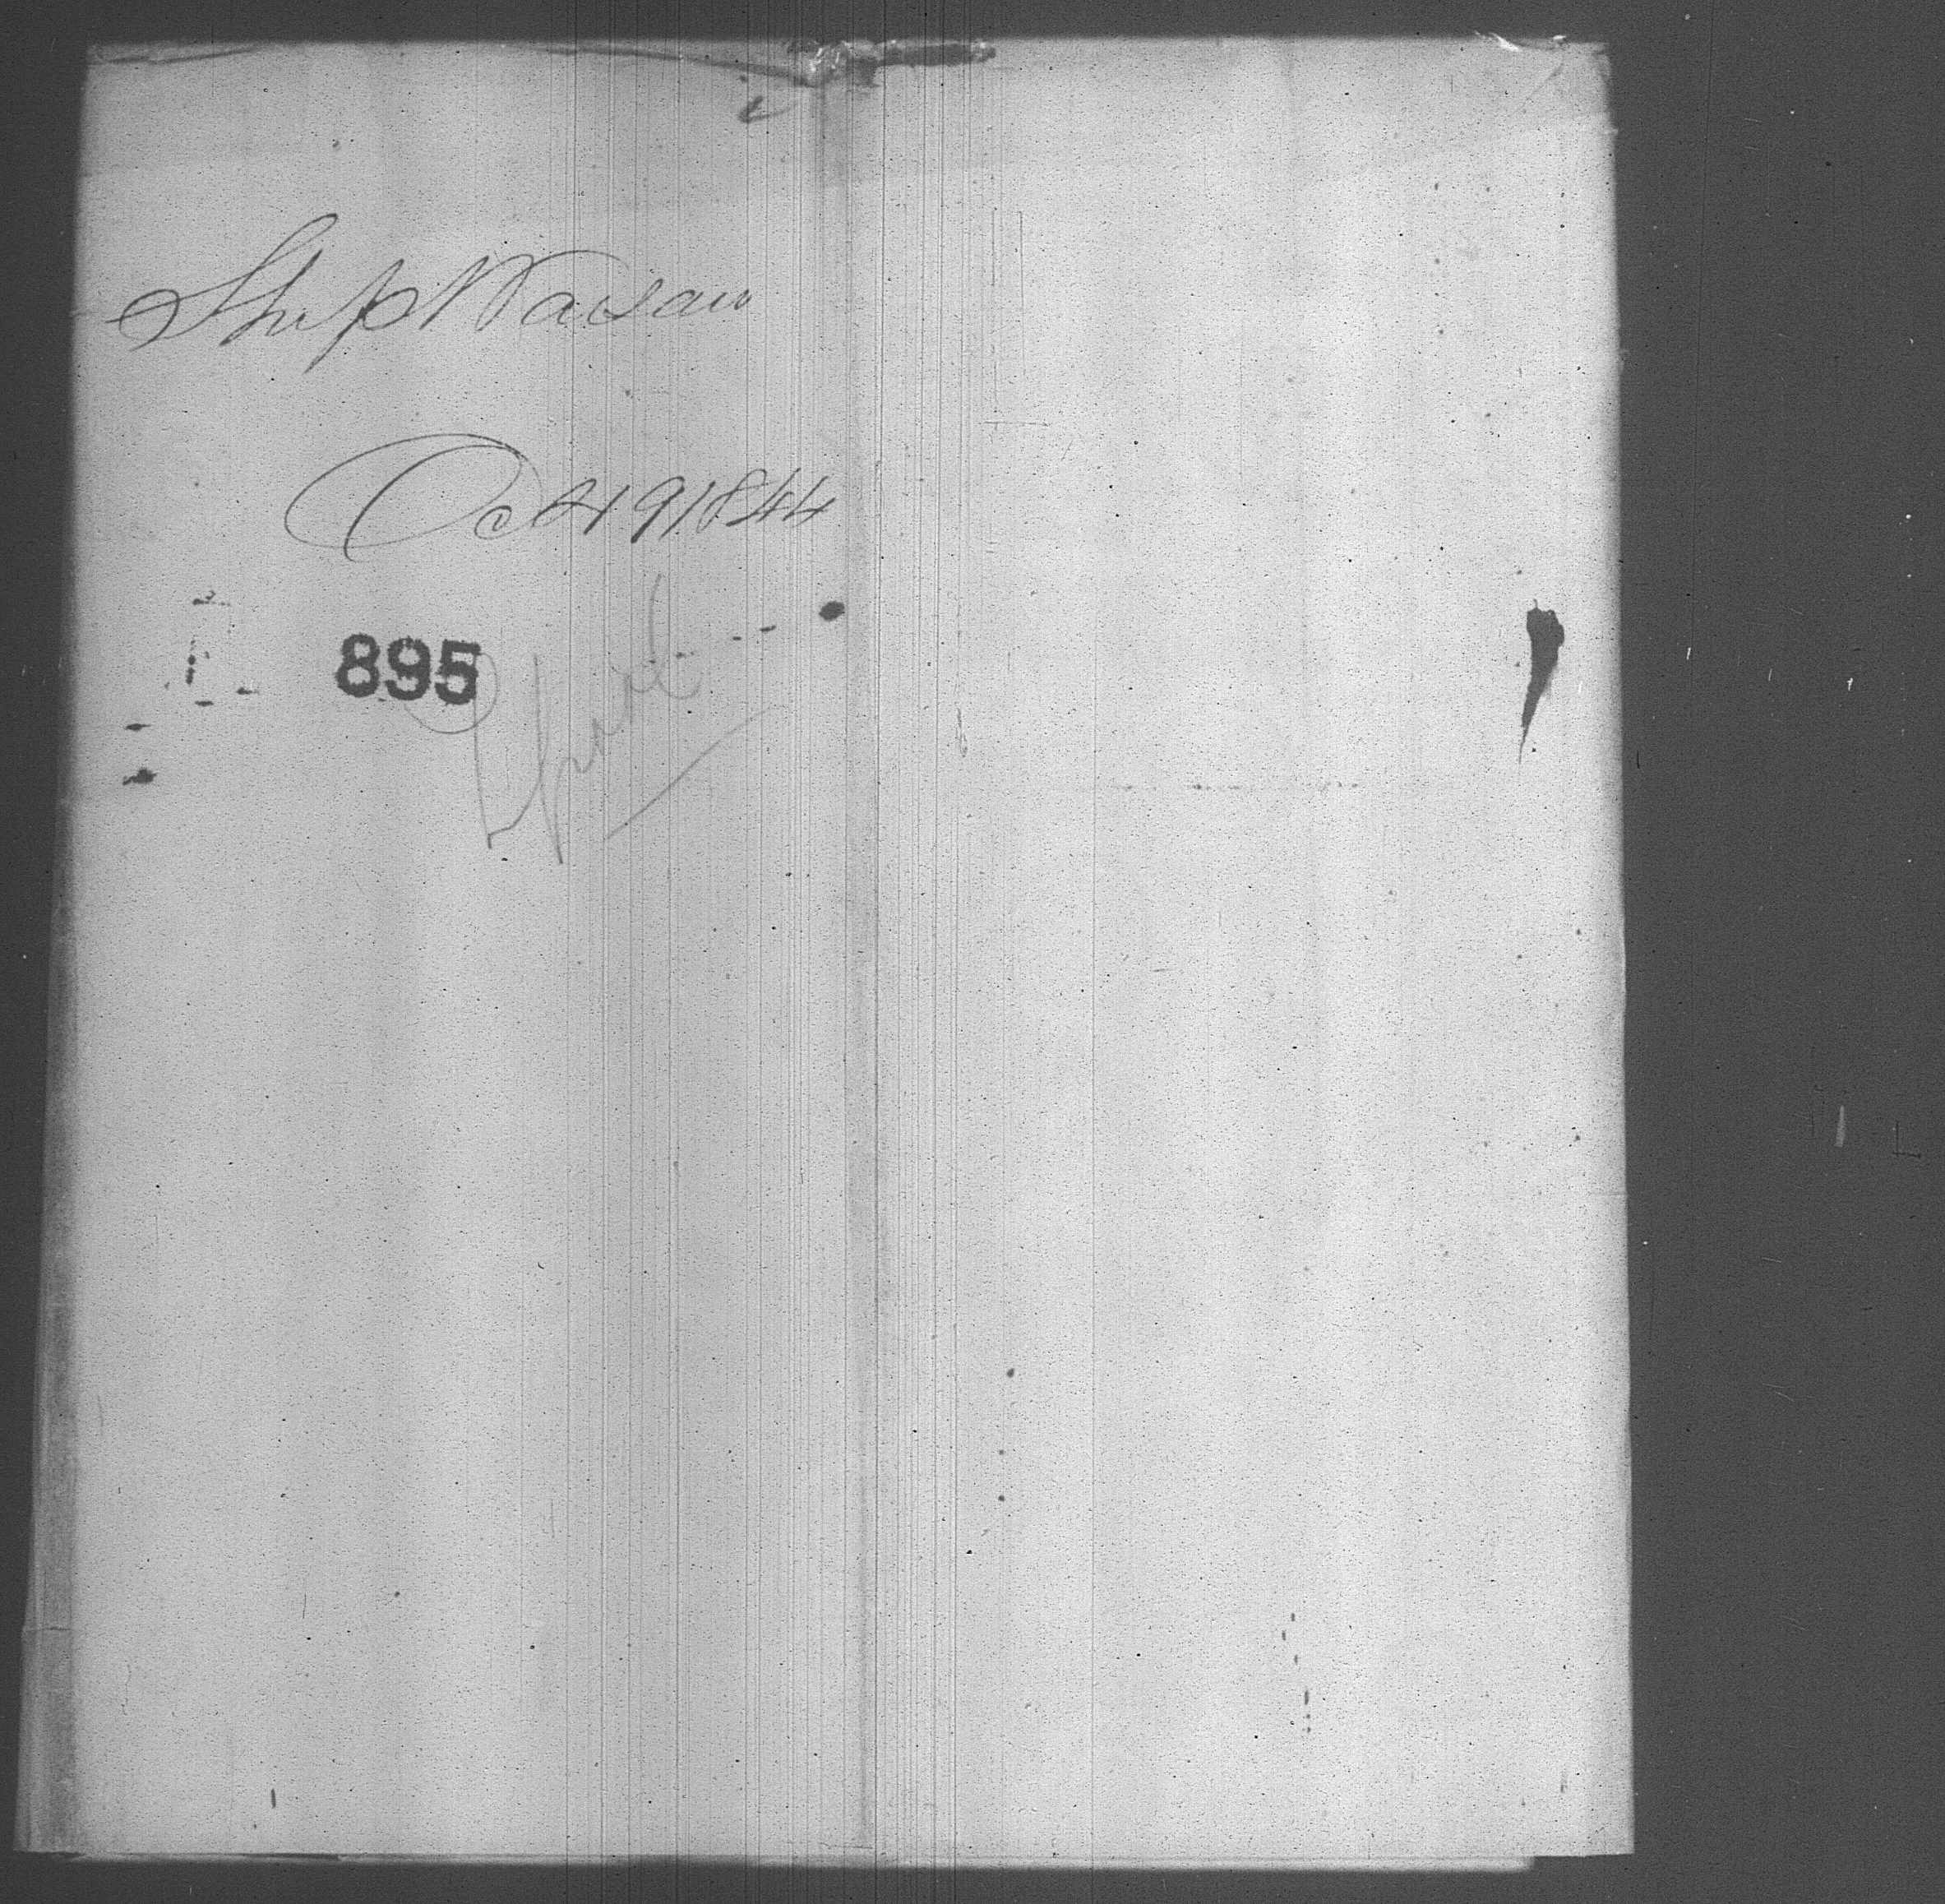 Ship Nassau
Oct 19 1844
895